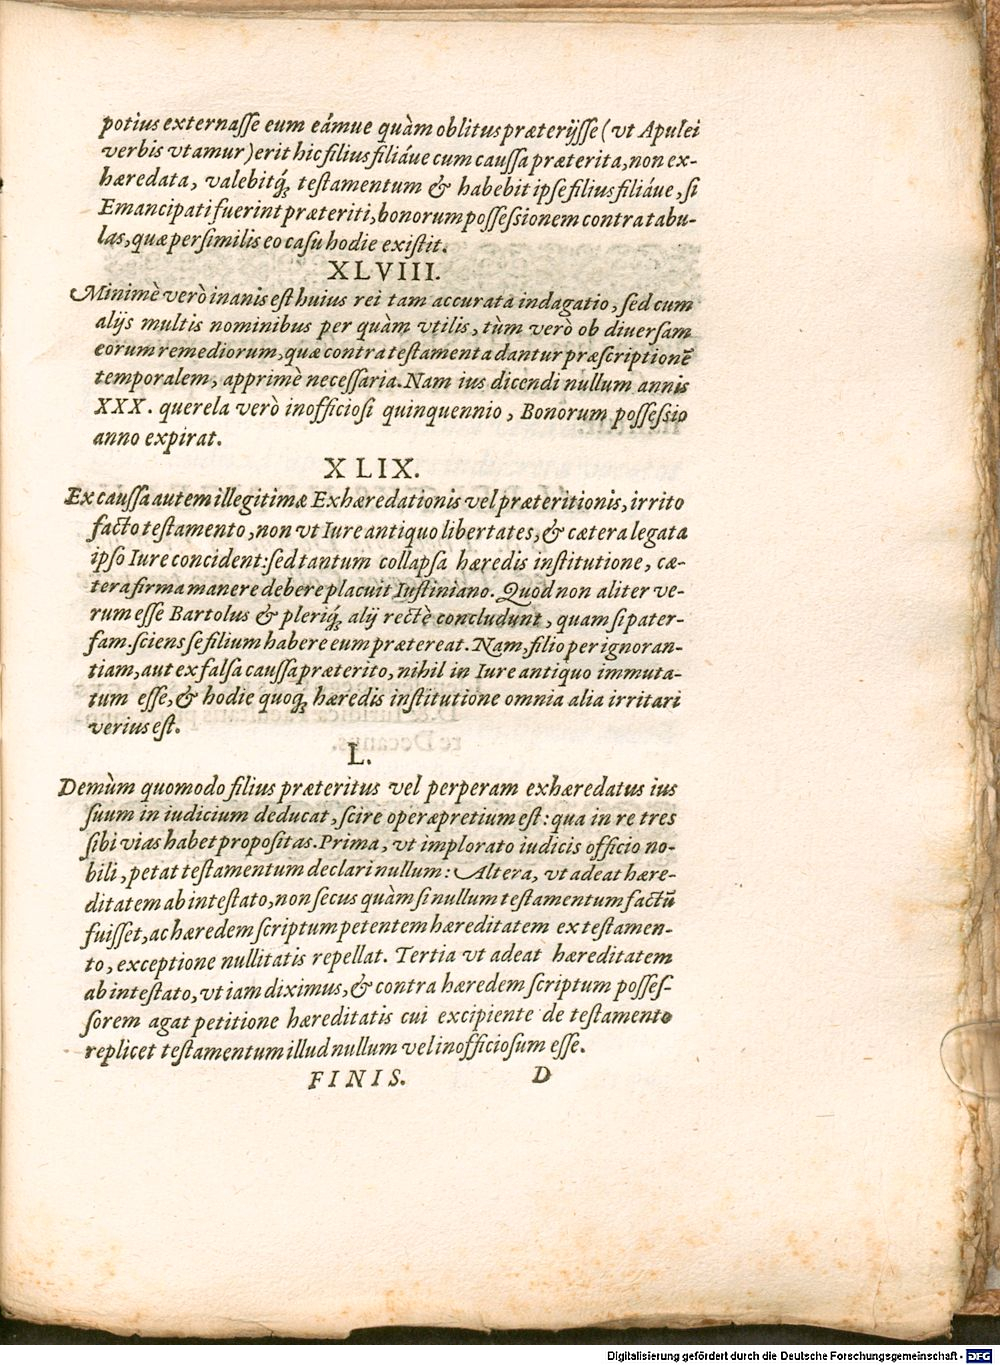 potius externasse eum eámue quàm oblitus præterijsse (vt Apulei
verbis vtamur) erit hic filius filiáue cum caussa præterita, non ex-
hæredata, valebitq́; testamentum & habebit ipse filius filiáue, si
Emancipati fuerint præteriti, bonorum possessionem contra tabu-
las, quæ persimilis eo casu hodie existit.
XLVIII.
Minimè verò inanis est huius rei tam accurata indagatio, sed cum
alijs multis nominibus per quàm vtilis, tùm verò ob diuersam
eorum remediorum, quæ contra testamenta dantur præscriptionẽ
temporalem, apprimè necessaria. Nam ius dicendi nullum annis
XXX. querela verò inofficiosi quinquennio, Bonorum possessio
anno expirat.
XLIX.
Ex caussa autem illegitimæ Exhæredationis vel præteritionis, irrito
facto testamento, non vt Iure antiquo libertates, & cætera legata
ipso Iure concident: sed tantum collapsa hæredis institutione, cæ-
tera firma manere debere placuit Iustiniano. Quod non aliter ve-
rum esse Bartolus & pleriq́; alij rectè concludunt, quam si pater-
fam. sciens se filium habere eum prætereat. Nam, filio per ignoran-
tiam, aut ex falsa caussa præterito, nihil in Iure antiquo immuta-
tum esse, & hodie quoq; hæredis institutione omnia alia irritari
verius est.
L.
Demùm quomodo filius præteritus vel perperam exhæredatus ius
suum in iudicium deducat, scire operæpretium est: qua in re tres
sibi vias habet propositas. Prima, vt implorato iudicis officio no-
bili, petat testamentum declari nullum: Altera, vt adeat hære-
ditatem ab intestato, non secus quàm si nullum testamentum factũ
fuisset, ac hæredem scriptum petentem hæreditatem ex testamen-
to, exceptione nullitatis repellat. Tertia vt adeat hæreditatem
ab intestato, vt iam diximus, & contra hæredem scriptum posses-
sorem agat petitione hæreditatis cui excipiente de testamento
replicet testamentum illud nullum vel inofficiosum esse.
FINIS. D
Digitalisierung gefördert durch die Deutsche Forschungsgemeinschaft - DFG